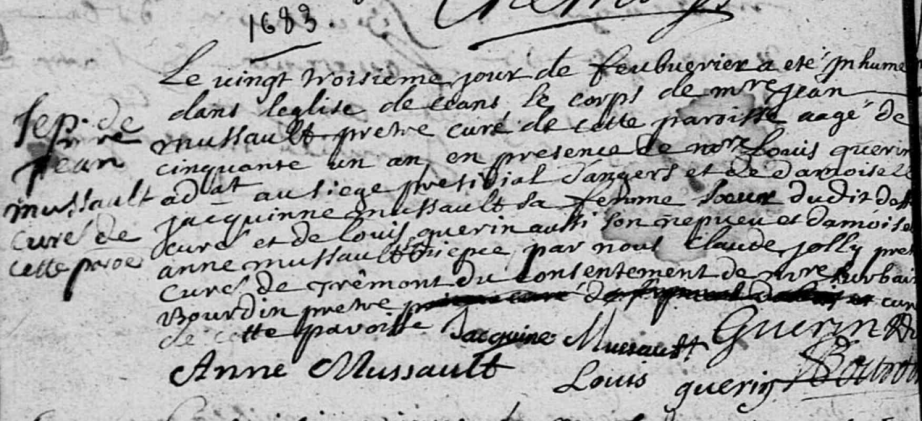 1683.
Le vingt troisième jour de feubvrier a eté inhume
dans leglise de ceans le corps de mre jean
mussault pretre curé de cette paroisse aagé de
cinquante un an en presence de mr Louis guerin
adat au siege presidial dangers et de damoiselle
jacquinne mussault sa femme soeur dudit deff
curé et de louis guerin aussi son nepveu et damoiselle
anne mussault niepce par nous Claude jolly pret
curé de Trêmont du consentement de mre urbain
Bourdin pretre et curé
de cette paroisse
Sep. de
mre
jean
mussault
curé de
cette paroe
Jacquine Mussault Guerin
Anne Mussault Louis guerin Bourdin